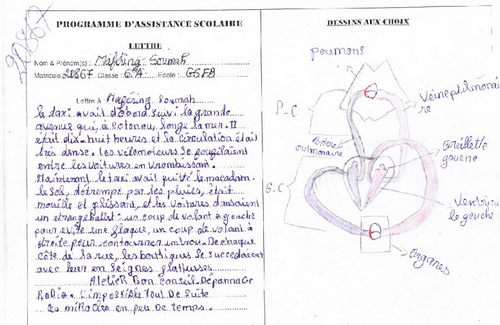 20867
PROGRAMME D'ASSISTANCE SCOLAIRE
LETTRE
Nom & Prénom(s) : Mafering Soumah
Matricule 20867 Classe : 6ᵉA Ecole : GSFB
Lettre à Mafering Soumah
le taxi avait d'abord suivi la grande
avenue qui, à Cotonou, longe la mer. Il
était dix-huit heures et la circulation était
très dense. Les vélomoteurs se faufilaient
entre les voitures en vrombissant.
Maintenant le taxi avait quitté le macadam.
le sol, détrempé par les pluies, était
mouillé et glissant, et les voitures dansaient
un étrange ballet : un coup de volant à gauche
pour éviter une flaque, un coup de volant à
droite pour contourner un trou. De chaque
côté de la rue, les boutiques se succédaient
avec leur enseignes
Atelier Bon conseil - Dépannage
Radio - L'impossible tout de suite
Les miracles en peu de temps
DESSINS AUX CHOIX
poumons
P.C
Veine pulmonai
re
Artère
pulmonaire
Oreillette
gauche
G.C
Ventricu
le gauche
Organes